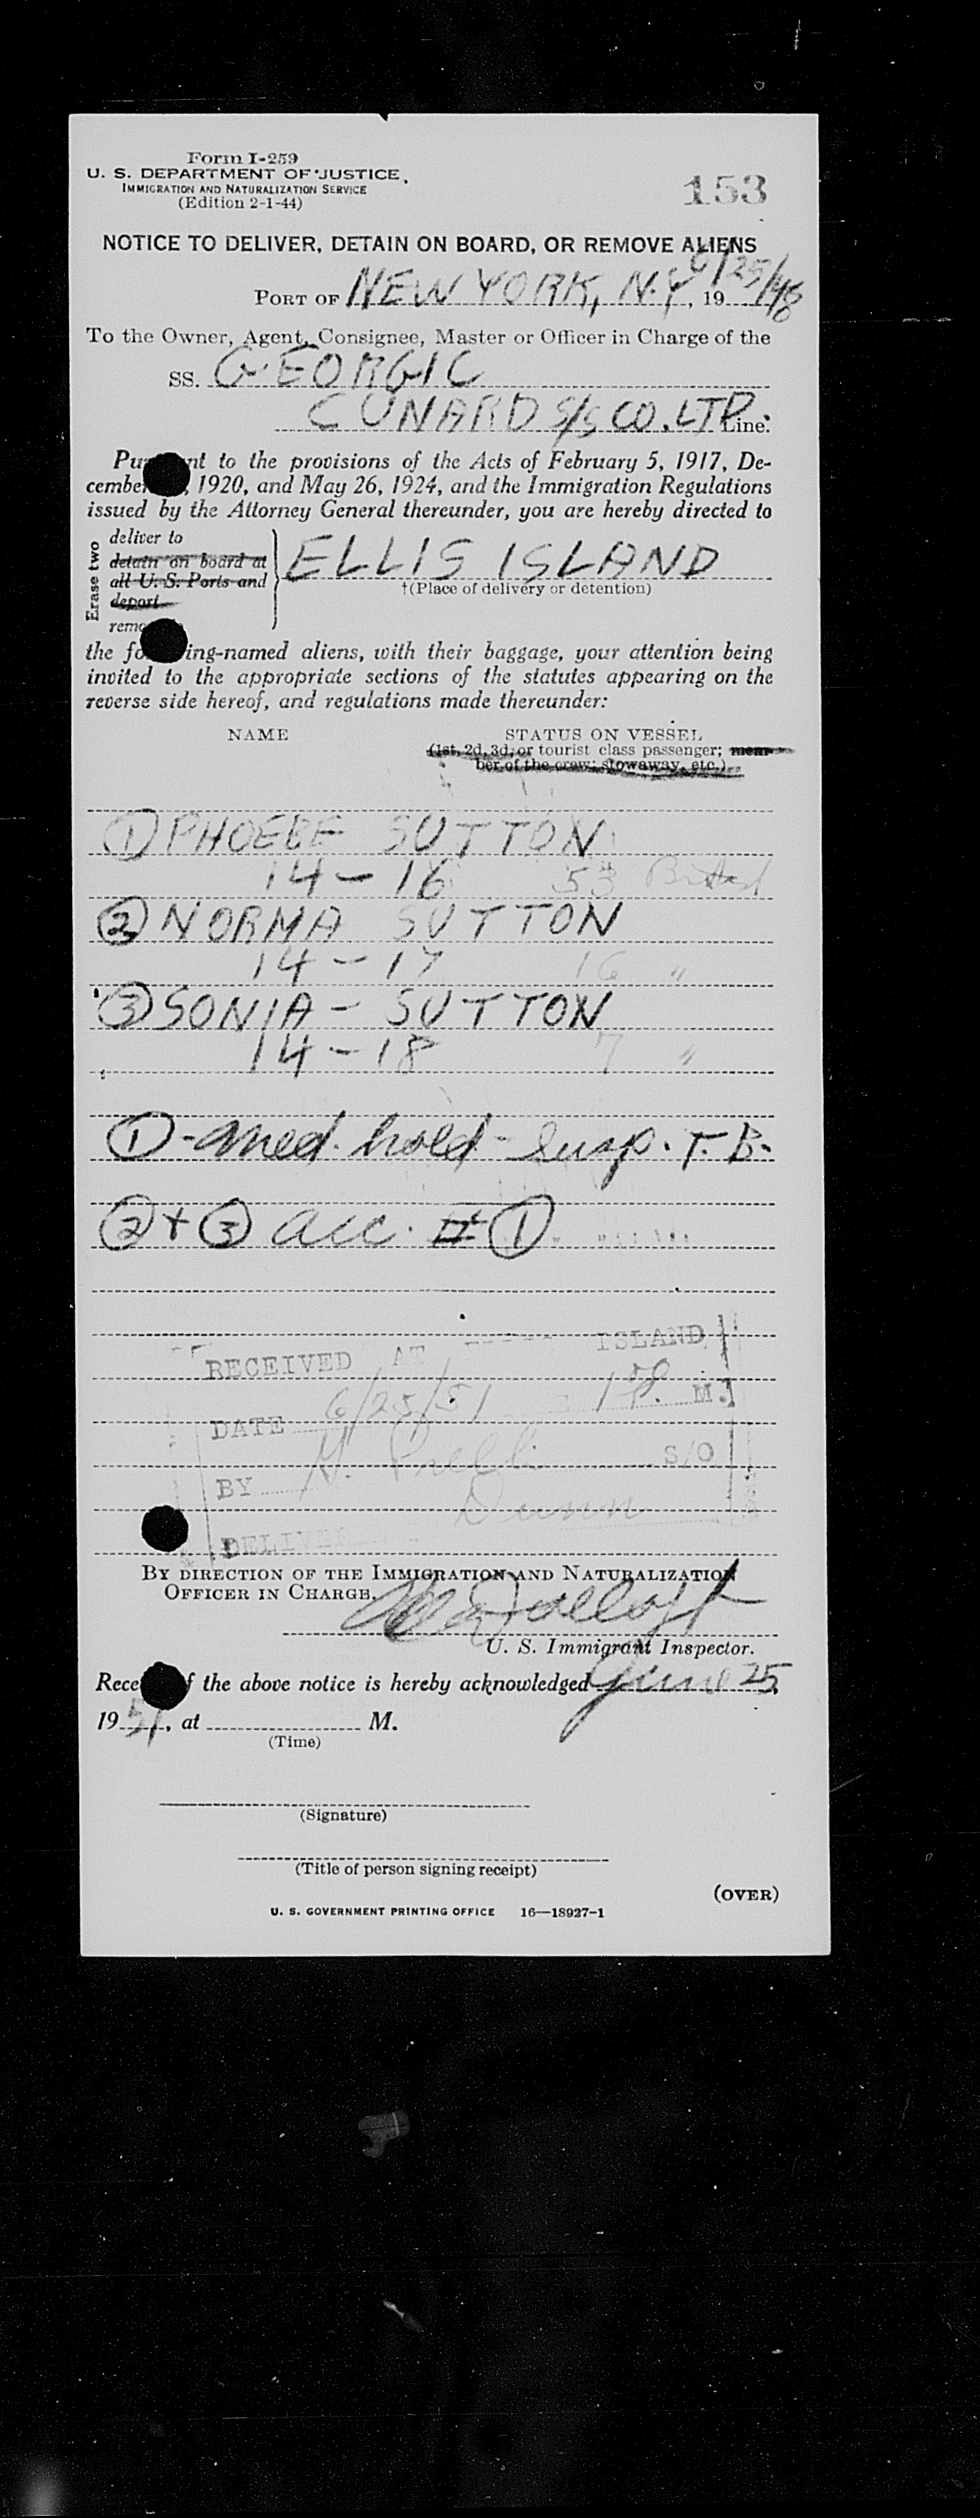 Form I-259
U. S. DEPARTMENT OF JUSTICE
IMMIGRATION AND NATURALIZATION SERVICE
(Edition 2-1-44)
153
NOTICE TO DELIVER, DETAIN ON BOARD, OR REMOVE ALIENS
PORT OF NEW YORK, N.Y, 19 6/25/48
To the Owner, Agent, Consignee, Master or Officer in Charge of the
SS. GEORGIC
CUNARD S/S CO. LTD. Line:
Pu nt to the provisions of the Acts of February 5, 1917, De-
cembe , 1920, and May 26, 1924, and the Immigration Regulations
issued by the Attorney General thereunder, you are hereby directed to
Erase two
deliver to
detain on board at
all U. S. Ports and
deport
remo
ELLIS ISLAND
†(Place of delivery or detention)
the fo ing-named aliens, with their baggage, your attention being
invited to the appropriate sections of the statutes appearing on the
reverse side hereof, and regulations made thereunder:
NAME STATUS ON VESSEL
(1st, 2d, 3d, or tourist class passenger; mem-
ber of the crew; stowaway, etc.)
① PHOEBE SUTTON
14 - 16 53
② NORMA SUTTON
14 - 17 16 "
③ SONIA - SUTTON
14 - 18 7 "
① - med. hold - susp. T. B.
② + ③ acc. # ①
RECEIVED AT ISLAND
DATE 6/25/51 M.
BY S/O
Dunn
DELIVE
BY DIRECTION OF THE IMMIGRATION AND NATURALIZATION
OFFICER IN CHARGE.
U. S. Immigrant Inspector.
Rece f the above notice is hereby acknowledged June 25,
19 51, at M.
(Time)
(Signature)
(Title of person signing receipt)
(OVER)
U. S. GOVERNMENT PRINTING OFFICE 16—18927-1